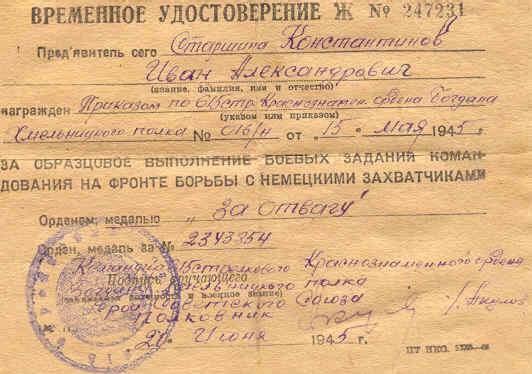 ВРЕМЕННОЕ УДОСТОВЕРЕНИЕ Ж № 247231
Пред'явитель сего Старшина Константинов
Иван Александрович
(звание, фамилия, имя и отчество)
награжден Приказом по Стр. Краснознамен ордена Богдана
(указом или приказом)
Хмельницкого полка № 016/н от „15„ мая 1945 г.
ЗА ОБРАЗЦОВОЕ ВЫПОЛНЕНИЕ БОЕВЫХ ЗАДАНИЙ КОМАН-
ДОВАНИЯ НА ФРОНТЕ БОРЬБЫ С НЕМЕЦКИМИ ЗАХВАТЧИКАМИ
Орденом, медалью „За отвагу"
Орден, медаль за № 2343354
Командир Стрелкового Краснознаменного ордена
Подпись вручающего
Богдана Хмельницкого полка
Герой Советского Союза
полковник
„20" Июня 1945 г.